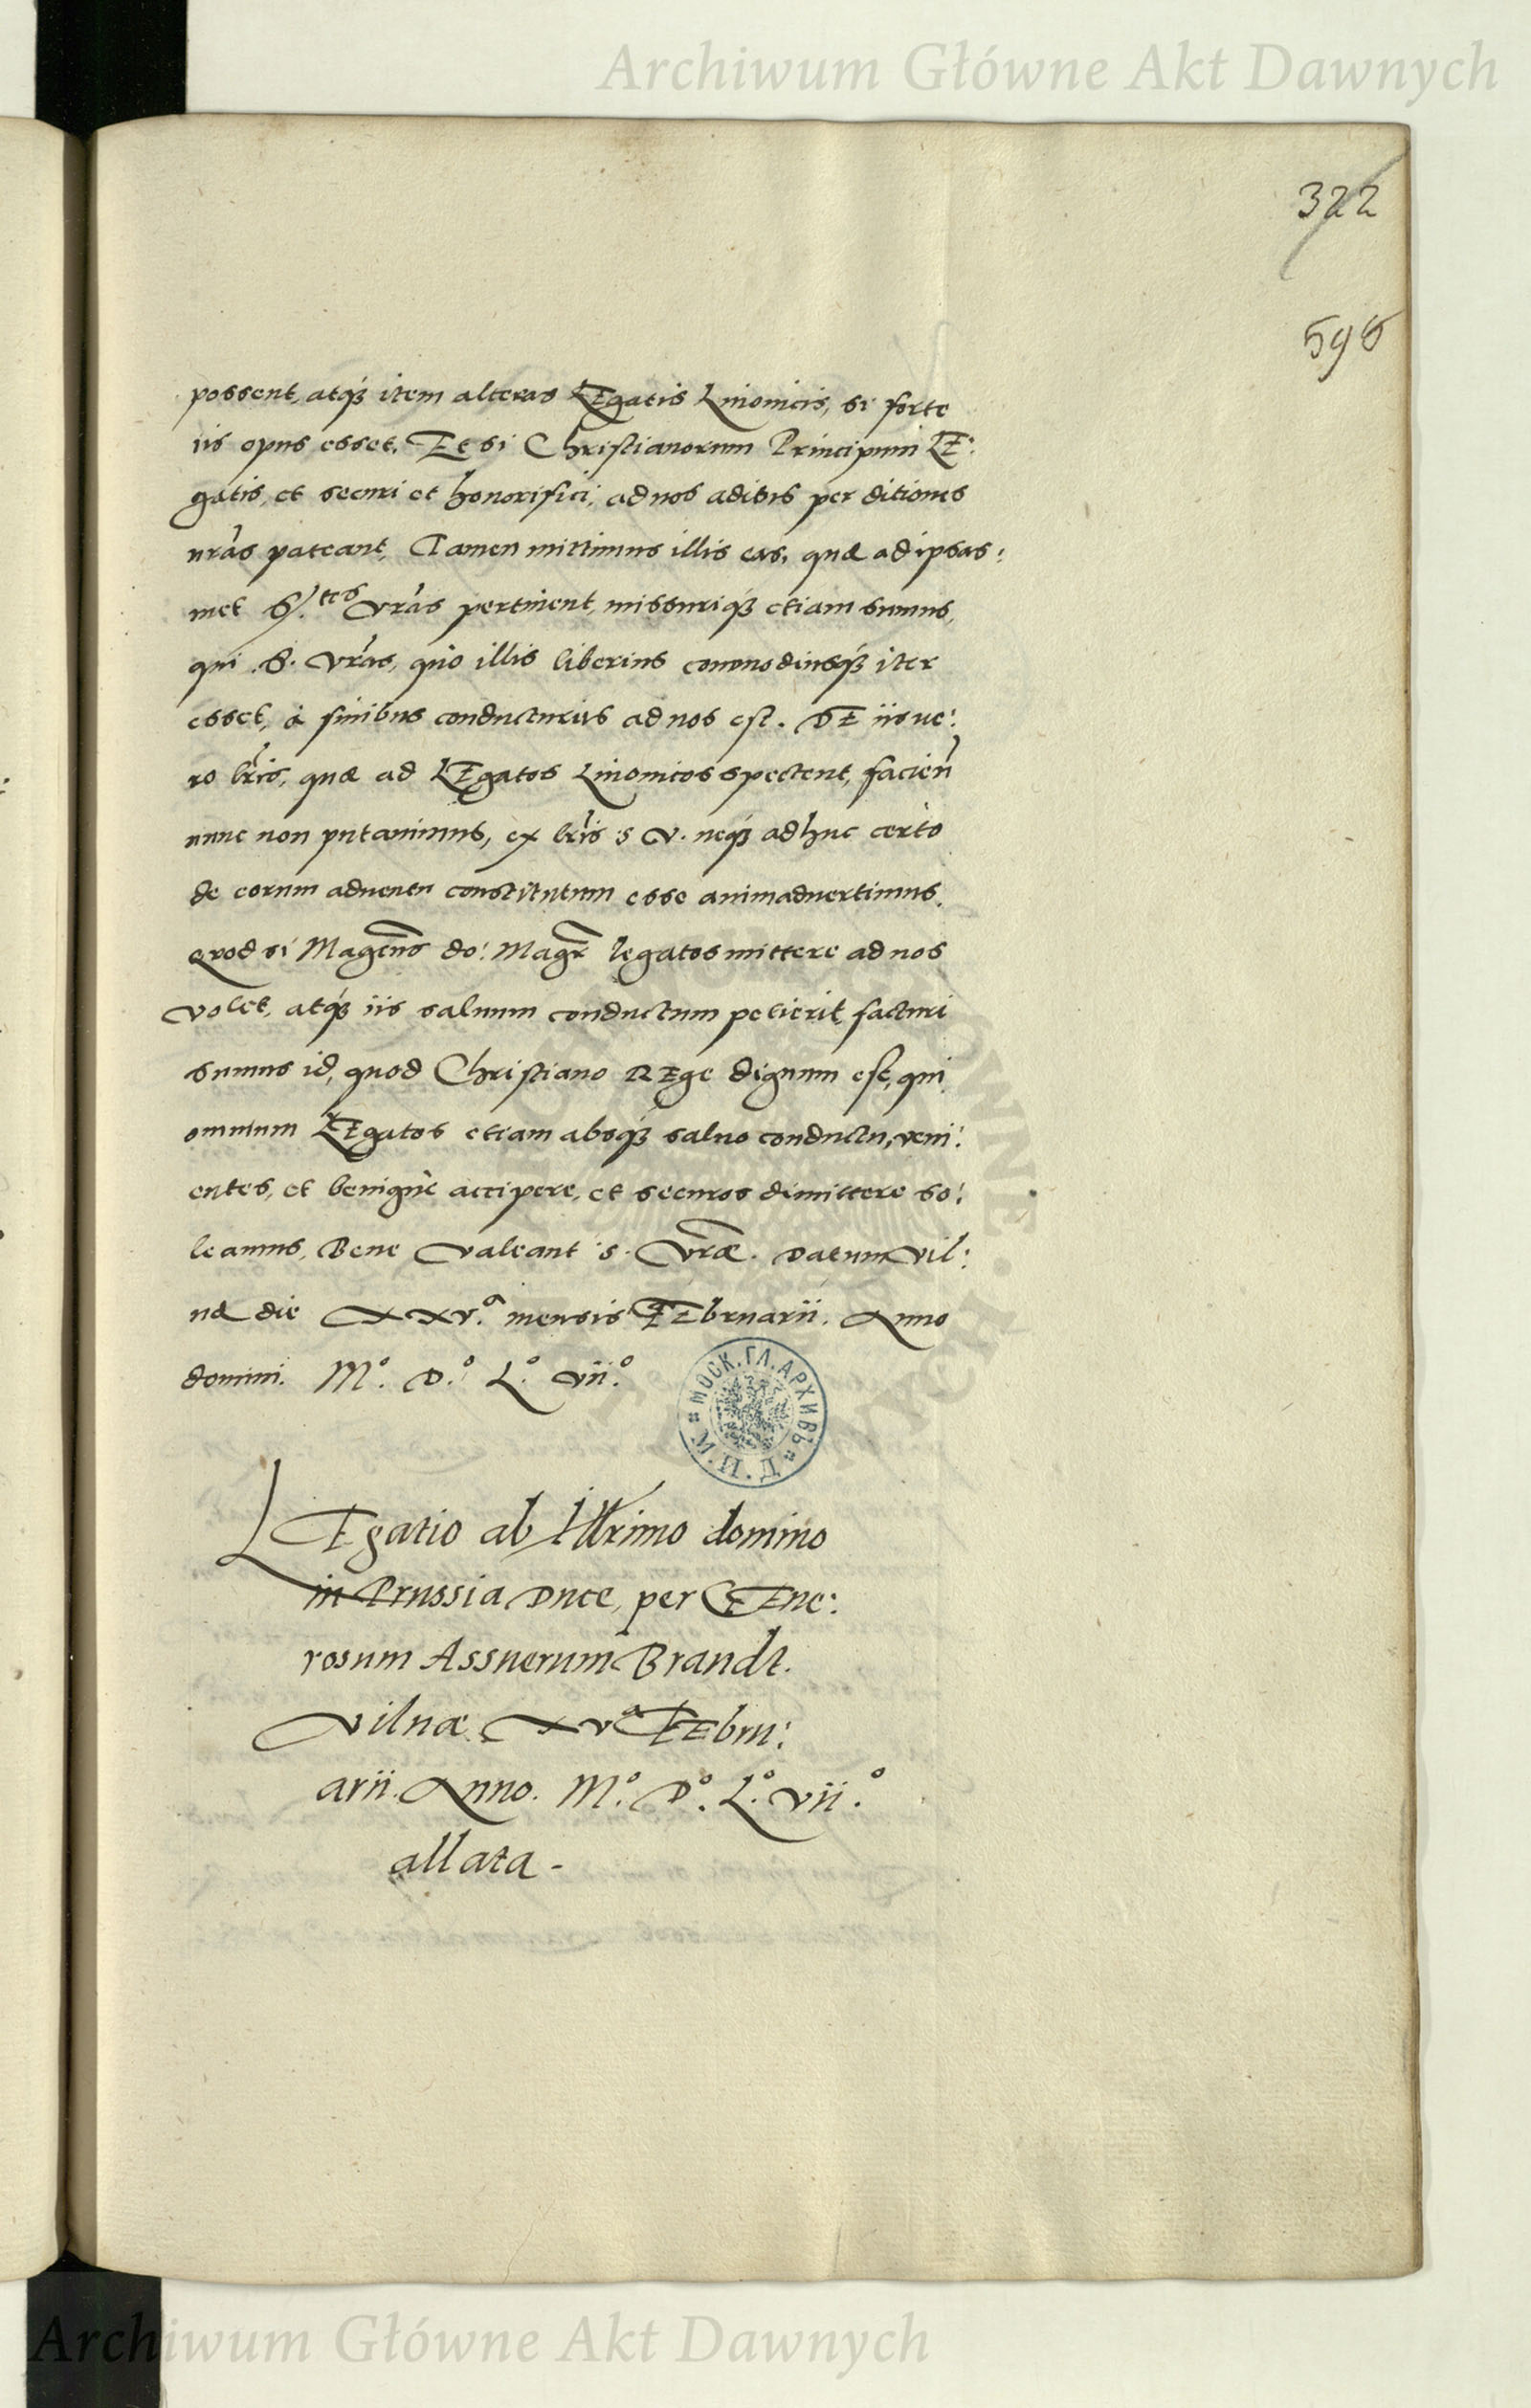 Archiwum Główne Akt Dawnych
322
598
possent, atq; item alteras LEgatis Liuonicis, si forte
iis opus esset. Et si Christianorum Principum LE:
gatis, et securi et honorifici, ad nos aditus per ditiones
nr̃as pateant, Tamen mittimus illis eas, quæ ad ipsas:
met S.tes Vr̃as pertinent, missuriq; etiam sumus,
qui S. Vr̃as, quò illis liberius commodiusq; iter
esset, à finibus conducturus ad nos est. DE iis ue:
ro lr̃is, quæ ad LEgatos Liuonicos spectent, facien̄
nunc non putauimus, ex lr̃is S V. neq; adhuc certò
de eorum aduentu constitutum esse animaduertimus.
Quod si Mag̃cus do: Mag̃r legatos mittere ad nos
volet, atq; iis saluum conductum petierit, facturi
sumus id, quod Christiano REge dignum est, qui
omnium LEgatos etiam absq; saluo conductu, veni:
entes, et benignè accipere, et securos dimittere so:
leamus, Bene Valeant S. Vr̃æ. Datum Vil:
næ die XXV.a mensis FEbruarii. Anno
domini. M.o D.o L.o vii.o
МОСК. ГЛ. АРХИВЪ М. И. Д.
LEgatio ab Ill̃rimo domino
in Prussia Duce, per GEne:
rosum Assuerum Brandt.
Vilnæ XVa FEbru:
arii. Anno. M.o D.o L.o vii.o
allata -
Archiwum Główne Akt Dawnych